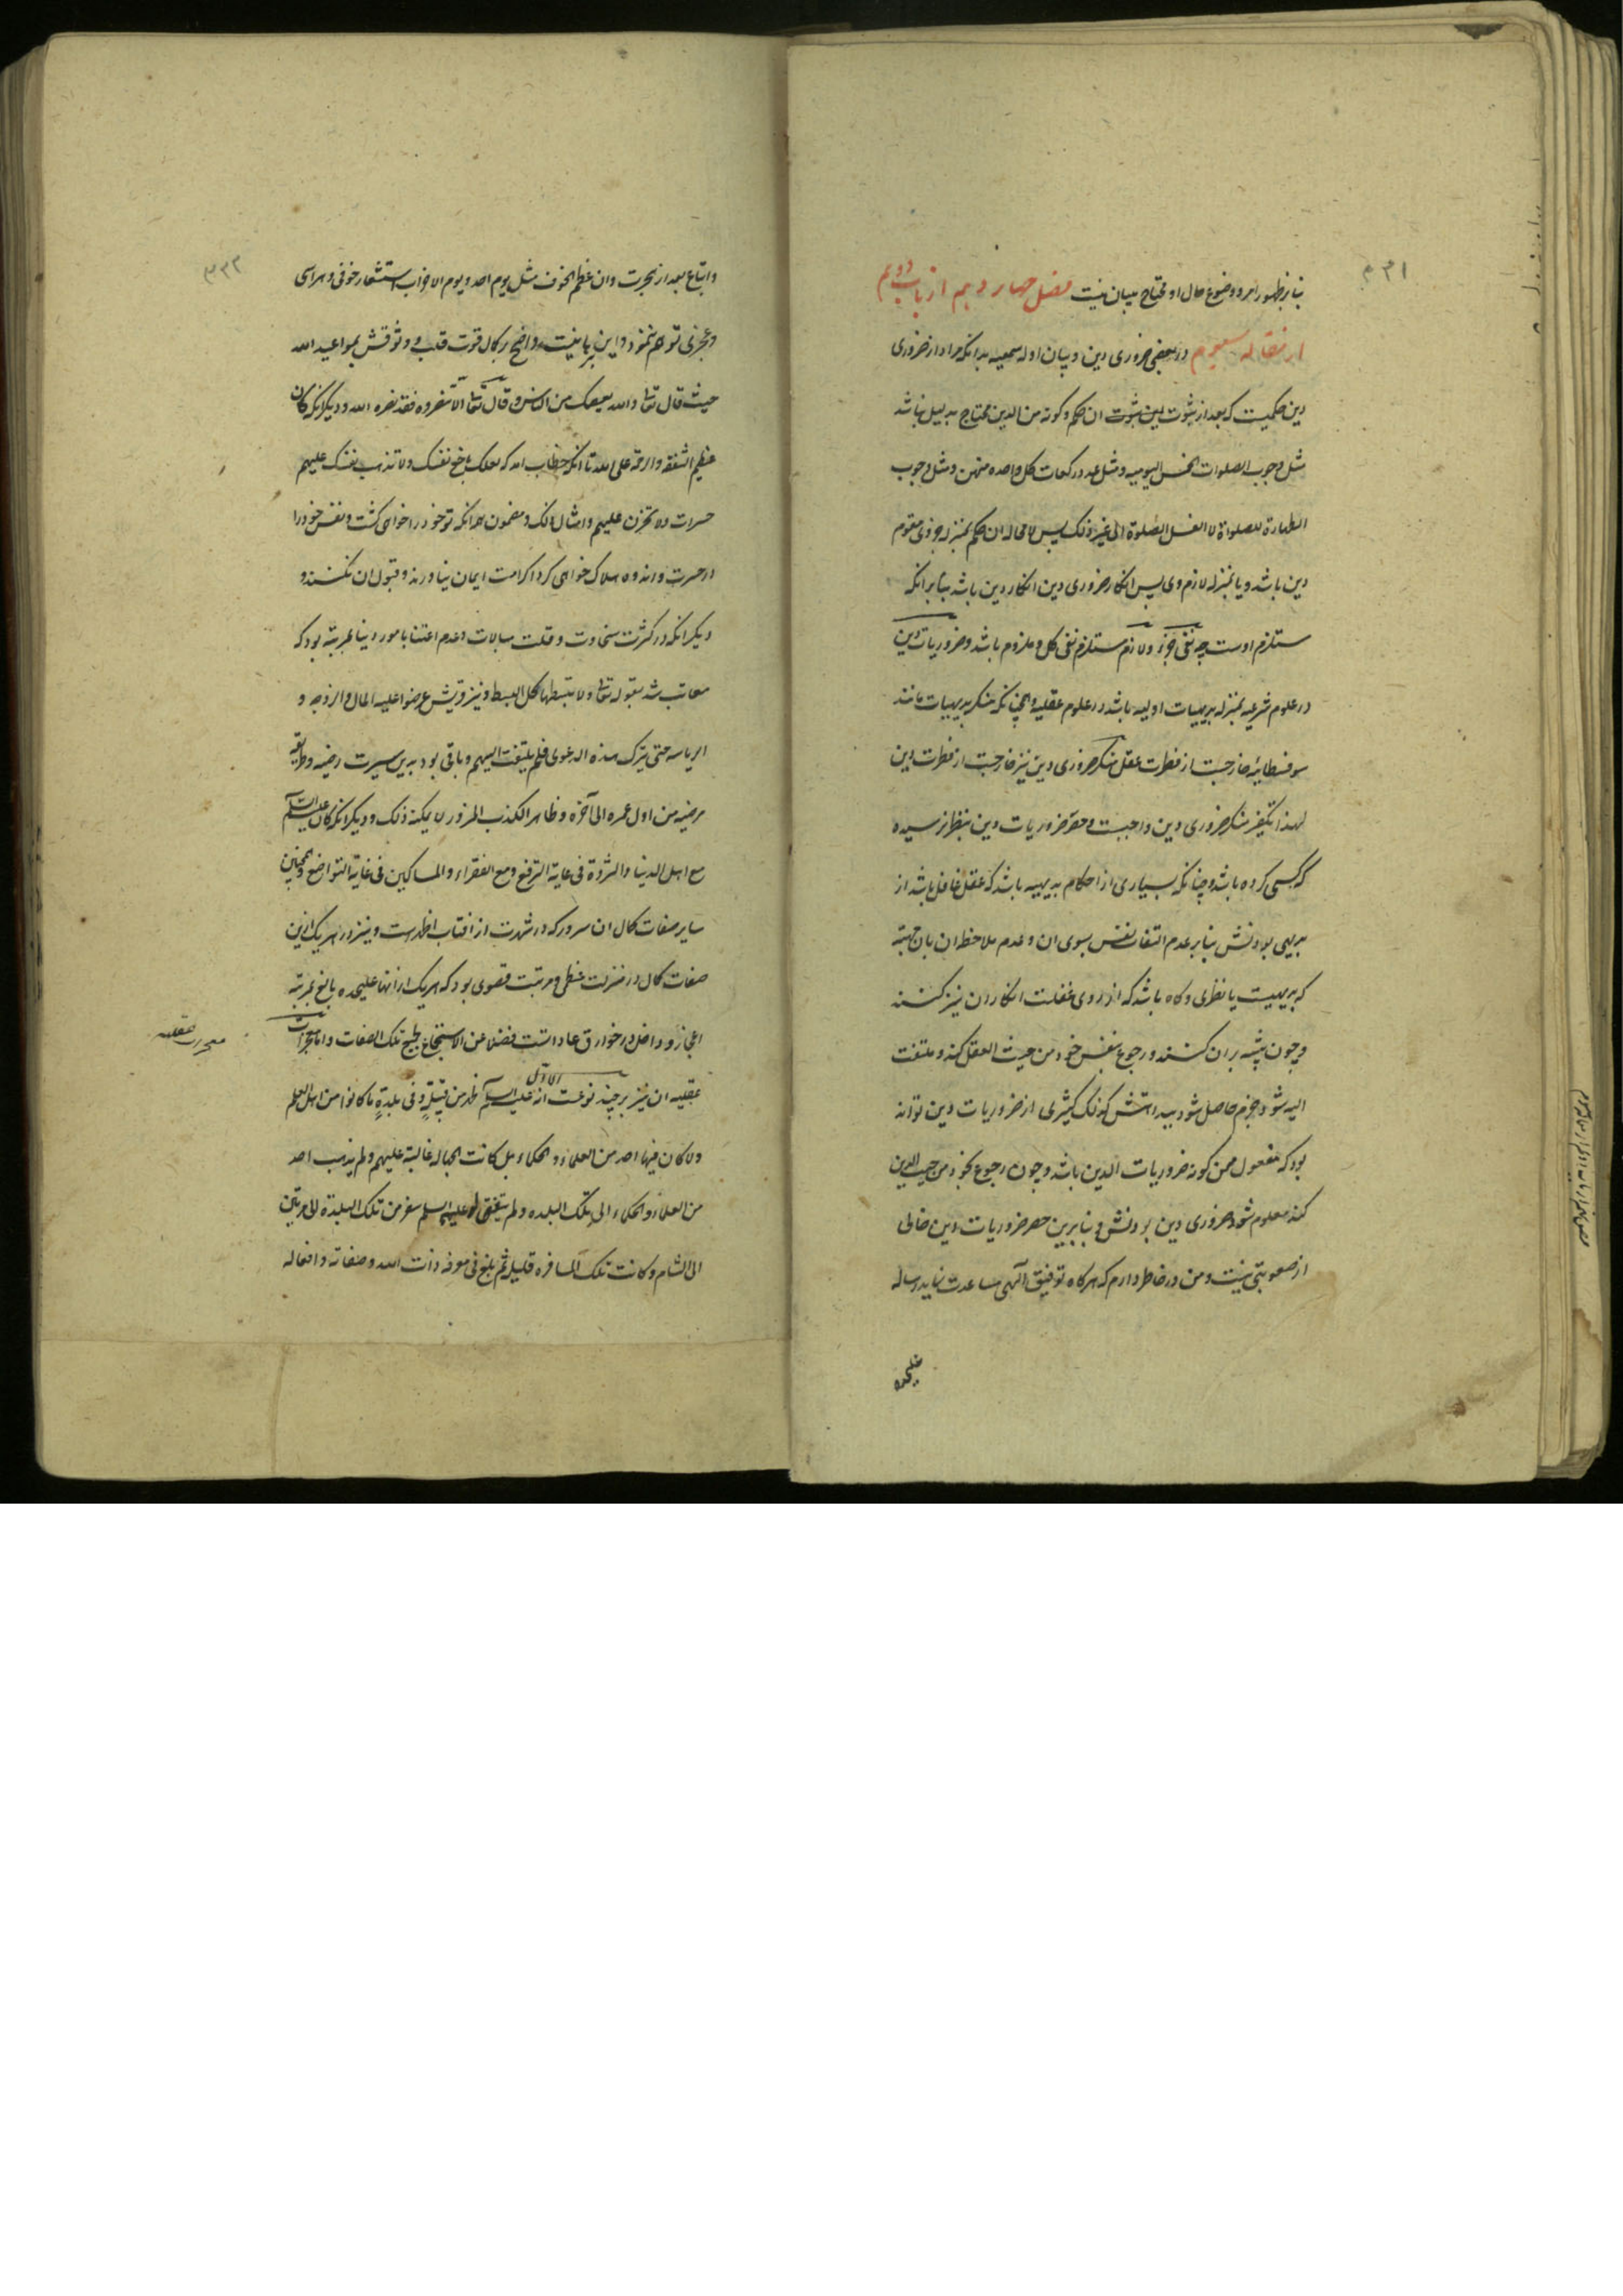 ۳۳۱
بنابر ظهور امر و وضوح حال او محتاج ببیان نیست فصل چهاردهم از باب دویم
از مقاله سیوم در معنی ضروری دین و بیان ادله سمعیه بدانکه مراد از ضروری
دین حکمیست که بعد از ثبوت دین ثبوت ان حکم و کونه من الدین محتاج بدلیل نباشد
مثل وجوب الصلوات الخمس الیومیه و مثل عدد رکعات کل واحده منهن و مثل وجوب
الطهارة للصلواة لا الغسل للصلوة الی غیر ذلک پس لا محاله ان حکم بمنزله جزوی مقوم
دین باشد و یا بمنزله لازم وی پس انکار ضروری دین انکار دین باشد بنابر انکه
مستلزم اوست چه نفی جزء و لازم مستلزم نفی کل و ملزوم باشد و ضروریات دین
در علوم شرعیه بمنزله بدیهیات اولیه باشد در علوم عقلیه و همچنانکه منکر بدیهیات مانند
سوفسطائیه خارجست از فطرت عقل منکر ضروری دین نیز خارجست از فطرت دین
لهذا تکفیر منکر ضروری دین واجبست و حصر ضروریات دین بنظر نرسیده
که کسی کرده باشد و چنانکه بسیاری از احکام بدیهیه باشد که عقل غافل باشد از
بدیهی بودنش بنابر عدم التفات نفس بسوی ان و عدم ملاحظه ان بان جهته
که بدیهیست یا نظری و کاه باشد که از روی غفلت انکار ان نیز کنند
و چون تنبیه بر ان کنند و رجوع بنفس خود من حیث العقل کند و ملتفت
الیه شود جزم حاصل شود ببداهتش کذلک کثیری از ضروریات دین تواند
بود که مغفول عن کونه ضروریات الدین باشد و چون رجوع بخود من حیث الدین
کند معلوم شود ضروری دین بودنش و بنابرین حصر ضروریات دین خالی
از صعوبتی نیست و من در خاطر دارم که هرکاه توفیق الهی مساعدت نماید رساله
علیحده
۳۳۲
و اتباع بعد از هجرت و ان عظم الخوف مثل یوم احد و یوم الاحزاب استشعار خوفی و هراسی
و عجزی توهم ننمود و این برهانیست واضح بر کمال قوت قلب و وثوقش بمواعید الله
حیث قال تعالی و الله یعصمک من الناس و قال تعالی الا تنصروه فقد نصره الله و دیگر انکه کان
عظیم الشفقه و الرحمة علی تا انکه خطاب امد که لعلک باخع نفسک و لا تذهب نفسک علیهم
حسرات و لا تحزن علیهم و امثال ذلک و مضمون هر انکه تو خود را خواهی کشت و نفس خود را
از حسرت و اندوه هلاک خواهی کرد اکر امت ایمان نیاورند و قبول ان نکنند و
دیکر انکه در کثرت سخاوت و قلت مبالات و عدم اعتنا بامور دنیا بمرتبه بود که
معاتب شد بقوله تعالی و لا تبسطها کل البسط و نیز قریش عرضوا علیه المال و الزوجه و
الریاسه حتی یترک هذه الدعوی فلم یلتفت الیهم و باقی بود بدین سیرت رضیه و طریقه
مرضیه من اول عمره الی آخره و ظاهر الکذب المزور لا یمکنه ذلک و دیکر انکه کان علیه السلم
مع اهل الدنیا و الثروة فی غایة الترفع و مع الفقراء و المساکین فی غایة التواضع و همچنین
سایر صفات کمال ان سرور که در شهرت از افتاب اظهرست و نیز در هر یک ازین
صفات کمال در منزلت عظمی و مرتبت قصوی بود که هر یک از انها علیحده بالغ بمرتبه
اعجاز و داخل در خوارق عاداتست فضلا عن الاستجماع لجمیع تلک الصفات و اما معجزات
معجزات عقلیه
عقلیه ان نیز بر چند نوعست الاول انه علیه السلم ظهر من قبیلةٍ و فی بلدةٍ ما کانوا من اهل العلم
و لا کان فیها احد من العلماء و الحکماء بل کانت الجهاله غالبة علیهم و لم یذهب احد
من العلماء و الحکماء الی تلک البلده و لم یتفق له علیه السلم سفر من تلک البلدة الا مرتین
الی الشام و کانت تلک المسافره قلیله ثم بلغ فی معرفه ذات الله و صفاته و افعاله